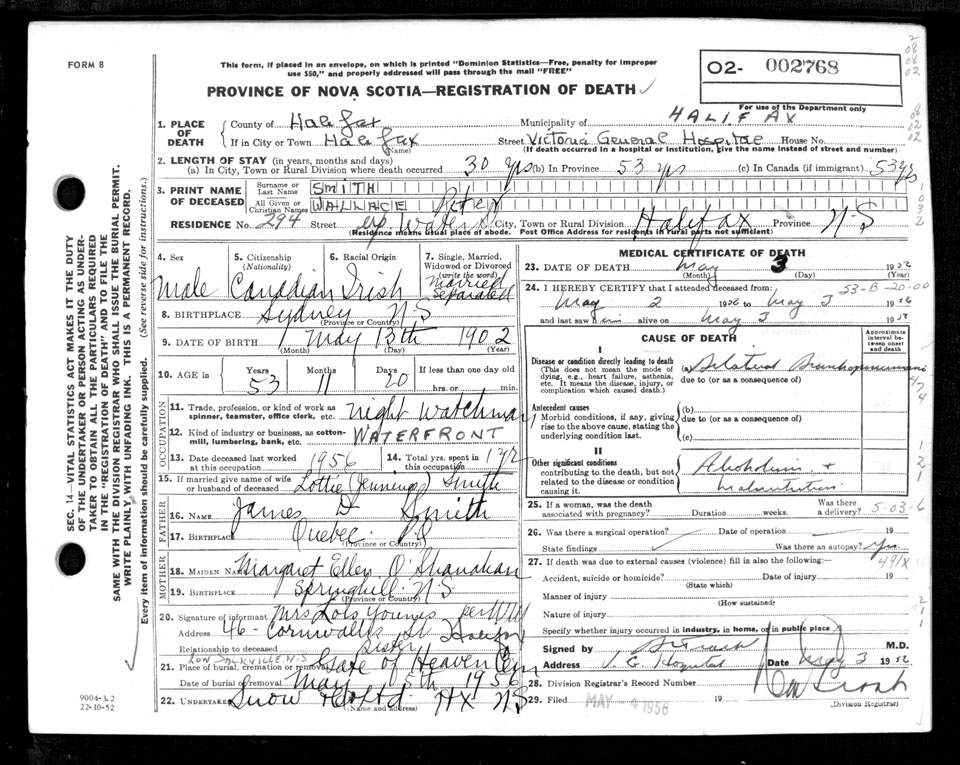 FORM 8
This form, if placed in an envelope, on which is printed "Dominion Statistics—Free, penalty for improper
use $50," and properly addressed will pass through the mail "FREE"
02- 002768
PROVINCE OF NOVA SCOTIA—REGISTRATION OF DEATH
For use of the Department only
1. PLACE OF DEATH
County of Halifax Municipality of HALIFAX
If in City or Town Halifax (Name) Street Victoria General Hospital House No.
(If death occurred in a hospital or institution, give the name instead of street and number)
2. LENGTH OF STAY (in years, months and days)
(a) In City, Town or Rural Division where death occurred 30 yrs (b) In Province 53 yrs (c) In Canada (if immigrant) 53 yrs
3. PRINT NAME OF DECEASED
Surname or Last Name SMITH
All Given or Christian Names WALLACE Peter
RESIDENCE No. 294 Street Up. Water St City, Town or Rural Division Halifax Province N-S
(Residence means usual place of abode. Post Office Address for residents in rural parts not sufficient)
4. Sex
Male
5. Citizenship (Nationality)
Canadian
6. Racial Origin
Irish
7. Single, Married, Widowed or Divorced (write the word)
Married Separated
8. BIRTHPLACE Sydney N-S
(Province or Country)
9. DATE OF BIRTH May 13th 1902
(Month) (Day) (Year)
10. AGE in Years 53 Months 11 Days 20 If less than one day old hrs. or min.
OCCUPATION
11. Trade, profession, or kind of work as spinner, teamster, office clerk, etc. Night Watchman
12. Kind of industry or business, as cotton-mill, lumbering, bank, etc. WATERFRONT
13. Date deceased last worked at this occupation 1956
14. Total yrs. spent in this occupation 1 yr
15. If married give name of wife or husband of deceased Lottie (Jennings) Smith
FATHER
16. NAME James D Smith
17. BIRTHPLACE Quebec P.Q
(Province or Country)
MOTHER
18. MAIDEN NAME Margaret Ellen O'Shanahan
19. BIRTHPLACE Springhill N-S
(Province or Country)
20. Signature of informant Mrs Lois Younis per
Address 46 - Cornwallis St Halifax
Relationship to deceased Sister
SACKVILLE, N-S
21. Place of burial, cremation or removal Gate of Heaven Cem
Date of burial or removal May 5th 1956
22. UNDERTAKER Snow & Co Ltd HX NS
(Name and address)
MEDICAL CERTIFICATE OF DEATH
23. DATE OF DEATH May 3 1956
(Month) (Day) (Year)
24. I HEREBY CERTIFY that I attended deceased from: 53-B-20-00
May 2 1956 to May 3 1956
and last saw him alive on May 3 19
CAUSE OF DEATH
Approximate interval between onset and death
I
Disease or condition directly leading to death
(This does not mean the mode of dying, e.g., heart failure, asthenia, etc. It means the disease, injury, or complication which caused death.)
(a) Bilateral Bronchopneumonia
due to (or as a consequence of)
Antecedent causes
Morbid conditions, if any, giving rise to the above cause, stating the underlying condition last.
(b)
due to (or as a consequence of)
(c)
II
Other significant conditions
contributing to the death, but not related to the disease or condition causing it.
Alcoholism +
Malnutrition
25. If a woman, was the death associated with pregnancy? Duration weeks. Was there a delivery? 5-03-6
26. Was there a surgical operation? Date of operation 19
State findings Was there an autopsy? Yes
27. If death was due to external causes (violence) fill in also the following:— 491X
Accident, suicide or homicide? Date of injury 19
(State which)
Manner of injury
(How sustained)
Nature of injury
Specify whether injury occurred in industry, in home, or in public place
Signed by M.D.
Address V. G. Hospital Date May 3 1956
28. Division Registrar's Record Number
29. Filed MAY - 4 1956 19
(Division Registrar)
SEC. 14—VITAL STATISTICS ACT MAKES IT THE DUTY
OF THE UNDERTAKER OR PERSON ACTING AS UNDER-
TAKER TO OBTAIN ALL THE PARTICULARS REQUIRED
IN THE "REGISTRATION OF DEATH" AND TO FILE THE
SAME WITH THE DIVISION REGISTRAR WHO SHALL ISSUE THE BURIAL PERMIT.
WRITE PLAINLY, WITH UNFADING INK. THIS IS A PERMANENT RECORD.
Every item of information should be carefully supplied. (See reverse side for instructions.)
9004-3.2
22-10-52